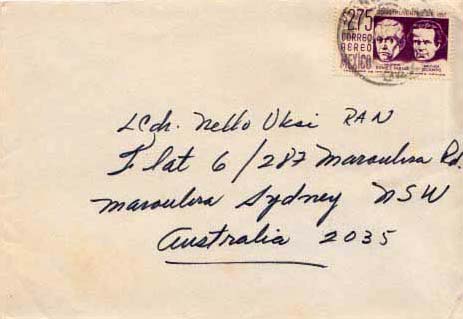 2.75
CORREO
AEREO
MEXICO
LCdr. Nello Uksi RAN
Flat 6/287 Maroubra Rd.
Maroubra Sydney NSW
Australia 2035